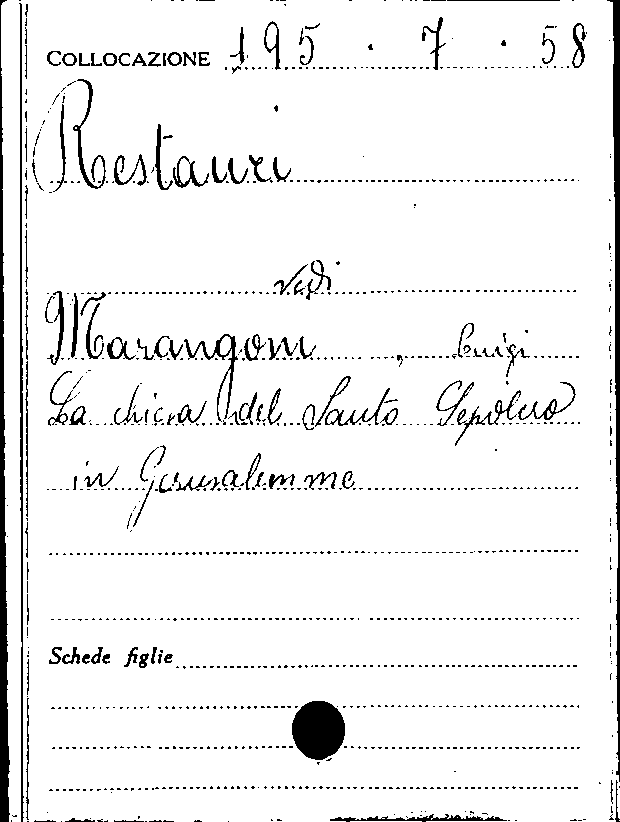 COLLOCAZIONE 195 . 7 . 58
Restauri
vedi
Marangoni, Luigi
La chiesa del Santo Sepolcro
in Gerusalemme
Schede figlie